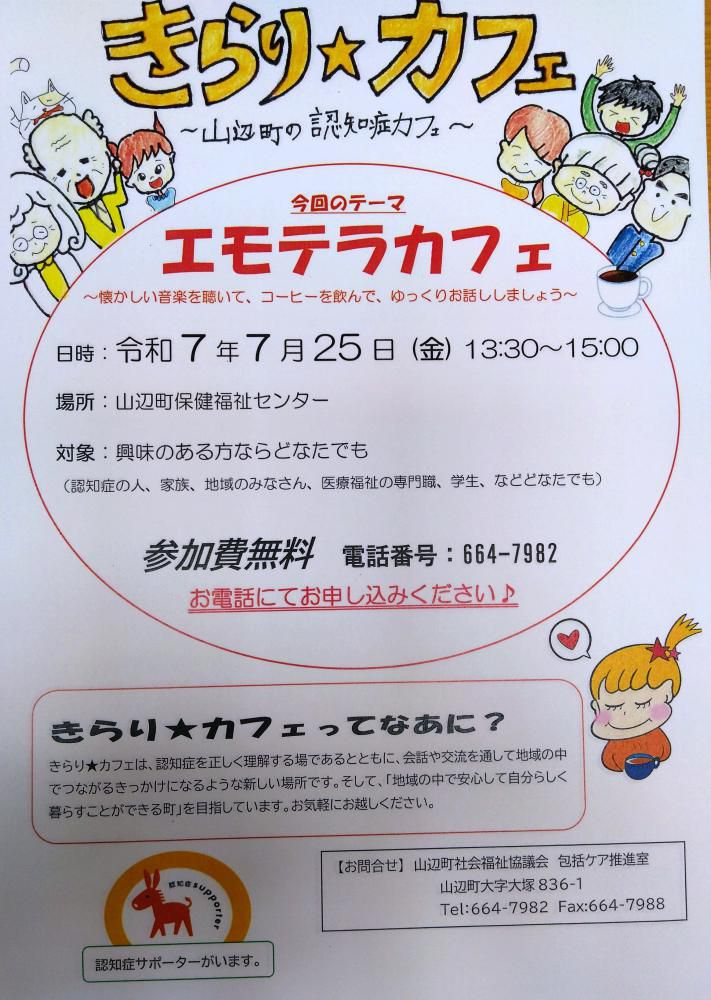 きらり★カフェ
～山辺町の認知症カフェ～
今回のテーマ
エモテラカフェ
～懐かしい音楽を聴いて、コーヒーを飲んで、ゆっくりお話ししましょう～
日時：令和７年７月２５日（金）13:30～15:00
場所：山辺町保健福祉センター
対象：興味のある方ならどなたでも
（認知症の人、家族、地域のみなさん、医療福祉の専門職、学生、などどなたでも）
参加費無料　電話番号：664-7982
お電話にてお申し込みください♪
きらり★カフェってなあに？
きらり★カフェは、認知症を正しく理解する場であるとともに、会話や交流を通して地域の中
でつながるきっかけになるような新しい場所です。そして、「地域の中で安心して自分らしく
暮らすことができる町」を目指しています。お気軽にお越しください。
認知症supporter
認知症サポーターがいます。
【お問合せ】山辺町社会福祉協議会　包括ケア推進室
山辺町大字大塚836-1
Tel:664-7982　Fax:664-7988